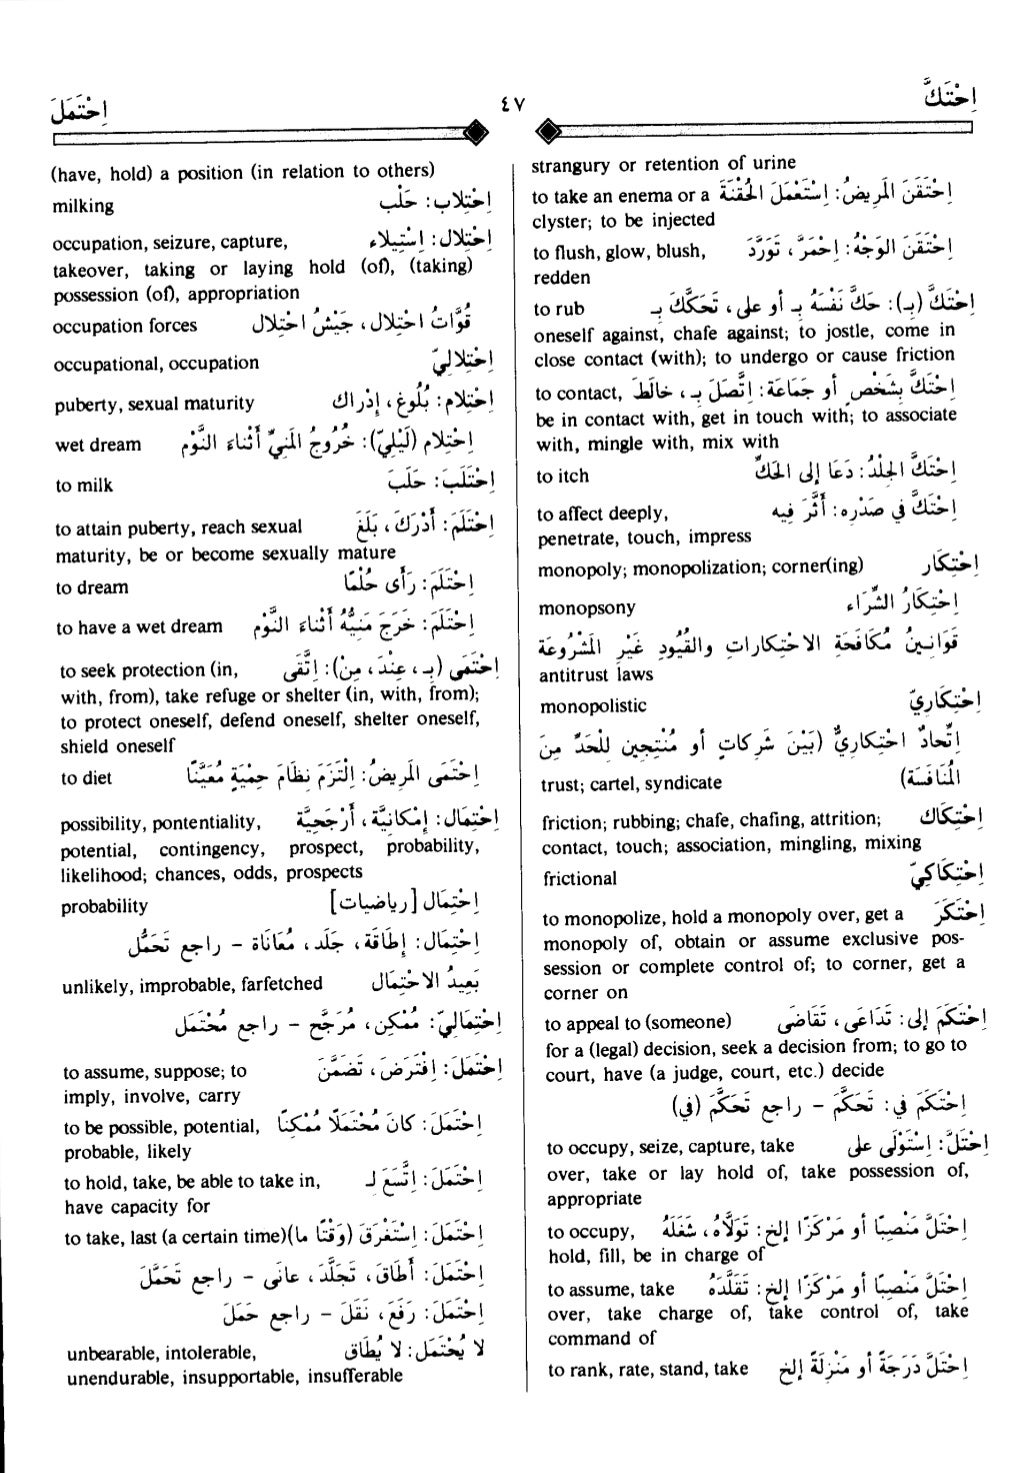 اِحْتَكَّ
٤٧
اِحْتَمَلَ
strangury or retention of urine
اِحْتَقَنَ المَرِيضُ: اِسْتَعْمَلَ الحُقْنَةَ to take an enema or a
clyster; to be injected
اِحْتَقَنَ الوَجْهُ: اِحْمَرَّ، تَوَرَّدَ to flush, glow, blush,
redden
اِحْتَكَّ (بِـ): حَكَّ نَفْسَهُ بِـ أو على، تَحَكَّكَ بِـ to rub
oneself against, chafe against; to jostle, come in
close contact (with); to undergo or cause friction
اِحْتَكَّ بِشَخْصٍ أو جَمَاعَة: اِتَّصَلَ بِـ، خالَطَ to contact,
be in contact with, get in touch with; to associate
with, mingle with, mix with
اِحْتَكَّ الجِلْدُ: دَعَا إلى الحَكِّ to itch
اِحْتَكَّ في صَدْرِه: أَثَّرَ فِيه to affect deeply,
penetrate, touch, impress
اِحْتِكَار monopoly; monopolization; corner(ing)
اِحْتِكَارُ الشِّرَاء monopsony
قَوَانِينُ مُكَافَحَةِ الاحْتِكاراتِ والقُيُودِ غَيْرِ المَشْرُوعَة
antitrust laws
اِحْتِكَارِيّ monopolistic
اِتِّحادٌ احْتِكارِيٌّ (بَيْنَ شَرِكاتٍ أو مُنْتِجِين لِلْحَدِّ مِنَ
المُنَافَسَة) trust; cartel, syndicate
اِحْتِكَاك friction; rubbing; chafe, chafing, attrition;
contact, touch; association, mingling, mixing
اِحْتِكَاكِيّ frictional
اِحْتَكَرَ to monopolize, hold a monopoly over, get a
monopoly of, obtain or assume exclusive pos-
session or complete control of; to corner, get a
corner on
اِحْتَكَمَ إلى: تَدَاعَى، تَقَاضَى to appeal to (someone)
for a (legal) decision, seek a decision from; to go to
court, have (a judge, court, etc.) decide
اِحْتَكَمَ في: تَحَكَّمَ – راجع تَحَكَّمَ (في)
اِحْتَلَّ: اِسْتَوْلَى على to occupy, seize, capture, take
over, take or lay hold of, take possession of,
appropriate
اِحْتَلَّ مَنْصِبًا أو مَرْكَزًا إلخ: تَوَلَّاهُ، شَغَلَهُ to occupy,
hold, fill, be in charge of
اِحْتَلَّ مَنْصِبًا أو مَرْكَزًا إلخ: تَقَلَّدَهُ to assume, take
over, take charge of, take control of, take
command of
اِحْتَلَّ دَرَجَةً أو مَنْزِلَةً إلخ to rank, rate, stand, take
(have, hold) a position (in relation to others)
اِحْتِلاب: حَلْب milking
اِحْتِلال: اِسْتِيلاء occupation, seizure, capture,
takeover, taking or laying hold (of), (taking)
possession (of), appropriation
قُوَّاتُ احْتِلال، جَيْشُ احْتِلال occupation forces
اِحْتِلالِيّ occupational, occupation
اِحْتِلام: بُلُوغ، إدْراك puberty, sexual maturity
اِحْتِلام (لَيْلِيّ): خُرُوجُ المَنِيِّ أَثْنَاءَ النَّوْم wet dream
اِحْتَلَبَ: حَلَبَ to milk
اِحْتَلَمَ: أَدْرَكَ، بَلَغَ to attain puberty, reach sexual
maturity, be or become sexually mature
اِحْتَلَمَ: رَأَى حُلْمًا to dream
اِحْتَلَمَ: خَرَجَ مَنِيُّهُ أَثْنَاءَ النَّوْم to have a wet dream
اِحْتَمَى (بِـ، عِنْدَ، مِنْ): اِتَّقَى to seek protection (in,
with, from), take refuge or shelter (in, with, from);
to protect oneself, defend oneself, shelter oneself,
shield oneself
اِحْتَمَى المَرِيضُ: اِلْتَزَمَ نِظَامَ حِمْيَةٍ مُعَيَّنًا to diet
اِحْتِمَال: إمْكانِيَّة، أَرْجَحِيَّة possibility, pontentiality,
potential, contingency, prospect, probability,
likelihood; chances, odds, prospects
اِحْتِمَال [رياضيات] probability
اِحْتِمَال: إطَاقَة، جَلَد، مُعَانَاة – راجع تَحَمُّل
بَعِيدُ الاحْتِمَال unlikely, improbable, farfetched
اِحْتِمَالِيّ: مُمْكِن، مُرَجَّح – راجع مُحْتَمَل
اِحْتَمَلَ: اِفْتَرَضَ، تَضَمَّنَ to assume, suppose; to
imply, involve, carry
اِحْتَمَلَ: كانَ مُحْتَمَلًا مُمْكِنًا to be possible, potential,
probable, likely
اِحْتَمَلَ: اِتَّسَعَ لِـ to hold, take, be able to take in,
have capacity for
اِحْتَمَلَ: اِسْتَغْرَقَ (وَقْتًا ما) to take, last (a certain time)
اِحْتَمَلَ: أَطَاقَ، تَجَلَّدَ، عانَى – راجع تَحَمَّلَ
اِحْتَمَلَ: رَفَعَ، نَقَلَ – راجع حَمَلَ
لا يُحْتَمَل: لا يُطَاق unbearable, intolerable,
unendurable, insupportable, insufferable